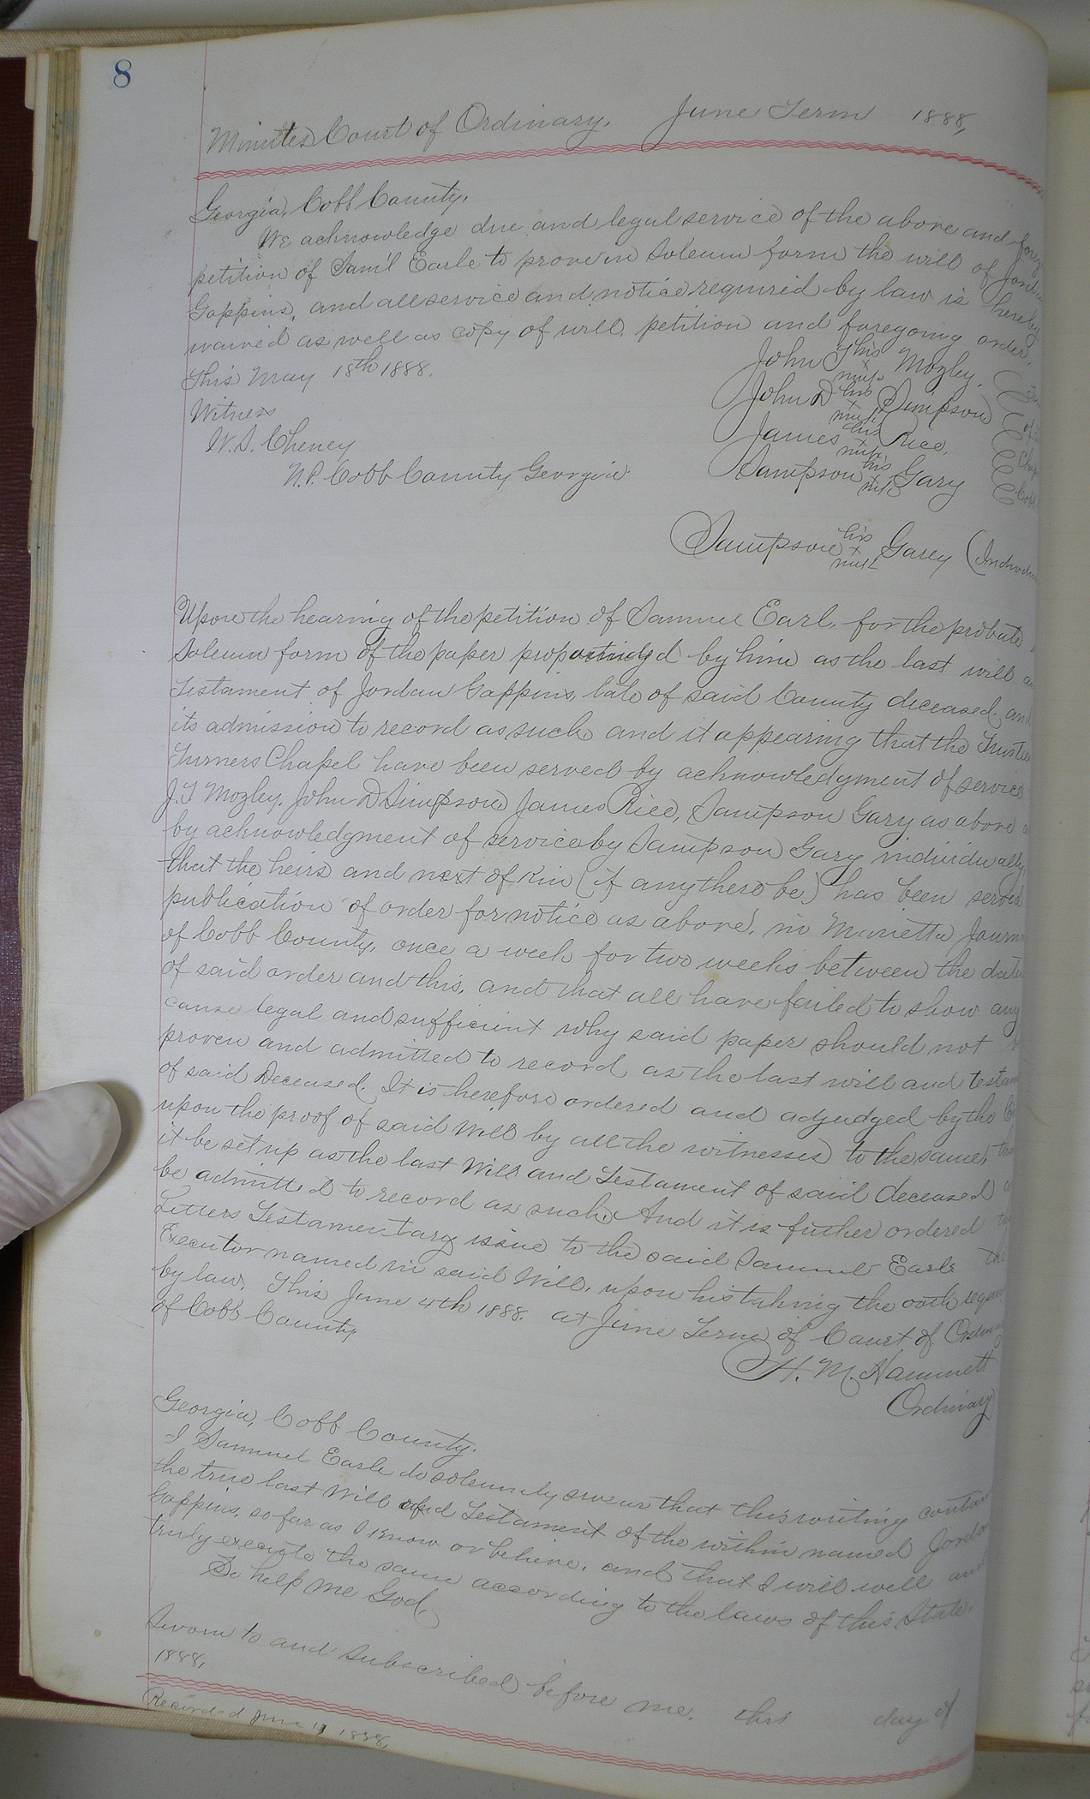 8
Minutes Court of Ordinary, June Term 1888,
Georgia, Cobb County.
We acknowledge due and legal service of the above and foreg
petition of Sam'l Earle to prove in Solemn form the will of Jordan
Gappins, and all service and notice required by law is hereby
waived as well as copy of will, petition and foregoing order.
This May 18th 1888.
John J his x mark Mozley.
John D his x mark Simpson
James his x mark Rice.
Sampson his x mark Gary
Witness
W. S. Cheney
N.P. Cobb County Georgia
Sampson his x mark Garey (Individu
Upon the hearing of the petition of Samuel Earl, for the probate
Solemn form of the paper propounded by him as the last will a
Testament of Jordan Gappins, late of said County deceased, and
its admission to record as such and it appearing that the Trustee
Turners Chapel have been served by acknowledgment of service
J. J Mozley, John D Simpson James Rice, Sampson Gary as above a
by acknowledgment of service by Sampson Gary individually,
that the heirs and next of Kin (if any there be) has been served
publication of order for notice as above, in Marietta Journ
of Cobb County, once a week for two weeks between the date
of said order and this, and that all have failed to show any
cause legal and sufficient why said paper should not
proven and admitted to record as the last will and testam
of said Deceased. It is therefore ordered and adjudged by the Co
upon the proof of said Will by all the witnesses to the same, tha
it be set up as the last Will and Testament of said deceased a
be admitted to record as such. And it is futher ordered tha
Letters Testamentary issue to the said Samuel Earle the
Executor named in said Will, upon his taking the oath requir
by law. This June 4th 1888. at June Term of Court of Ordinary
of Cobb County
H. M. Hammett
Ordinary
Georgia, Cobb County.
I Samuel Earle do solemnly swear that this writing contain
the true last Will and Testament of the within named Jordon
Gappins, so far as I know or believe, and that I will well and
truly execute the same according to the laws of this State.
So help me God,
Sworn to and Subscribed before me, this day of
1888,
Recorded June 11 1888,